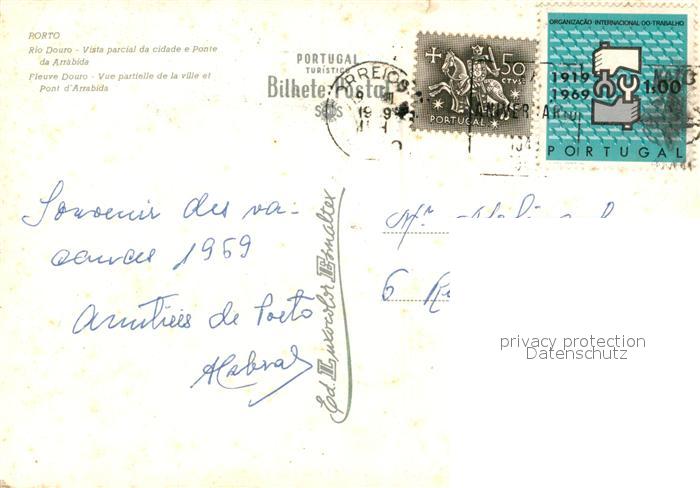 PORTO
Rio Douro - Vista parcial da cidade e Ponte
da Arrábida
Fleuve Douro - Vue partielle de la ville et
Pont d'Arrabida
PORTUGAL
TURÍSTICO
Bilhete Postal
CORREIOS
50
CTVS.
PORTUGAL
ORGANIZAÇÃO·INTERNACIONAL·DO·TRABALHO
1919
1969
1$00
PORTUGAL
Souvenir des va-
cances 1969
Amitiés de Porto
ACabral
Ed. Luxocolor Esmaltex
6
privacy protection
Datenschutz